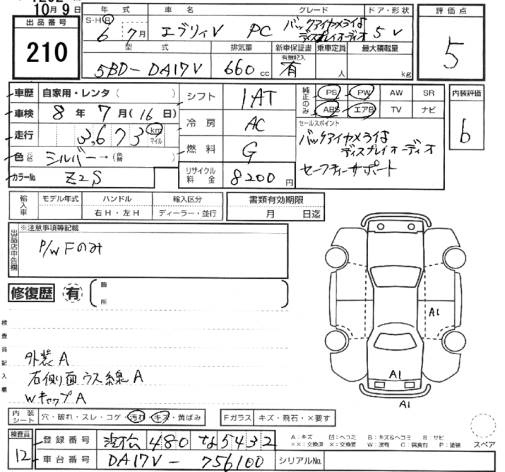 10月9日
出品番号
210
S・H・R 年式 車名 グレード ドア・形状 評価点
6年7月 エブリィV PC バックアイカメラ付 ディスプレイオーディオ 5V
5
型式 排気量 新車保証書 乗車定員 最大積載量
5BD-DA17V 660cc 有 人 kg
車歴 自家用・レンタ( )
車検 8年7月(16日)
走行 3,673 km マイル
色 シルバー→(替)
カラーNo. Z2S
シフト 1AT
冷房 AC
燃料 G
リサイクル料金 8200円
純正のみ PS PW AW SR
ABS エアB TV ナビ
内装評価
b
セールスポイント
バックアイカメラ付
ディスプレイオーディオ
セーフティーサポート
輸入車 モデル年式 ハンドル 輸入区分
右H・左H ディーラー・並行
書類有効期限
月 日迄
出品店申告欄
※注意事項等記載
P/W Fのみ
修復歴 有
箇所
検査員記入欄
外装A
右側面ウス線A
WキャップA
A1
A1
A1
内装シート 穴・破れ・スレ・コゲ・汚れ・キズ・黄ばみ Fガラス キズ・飛石・×要す
検査員 12
登録番号 480 な5432
車台番号 DA17V-756100 シリアルNo.
スペア